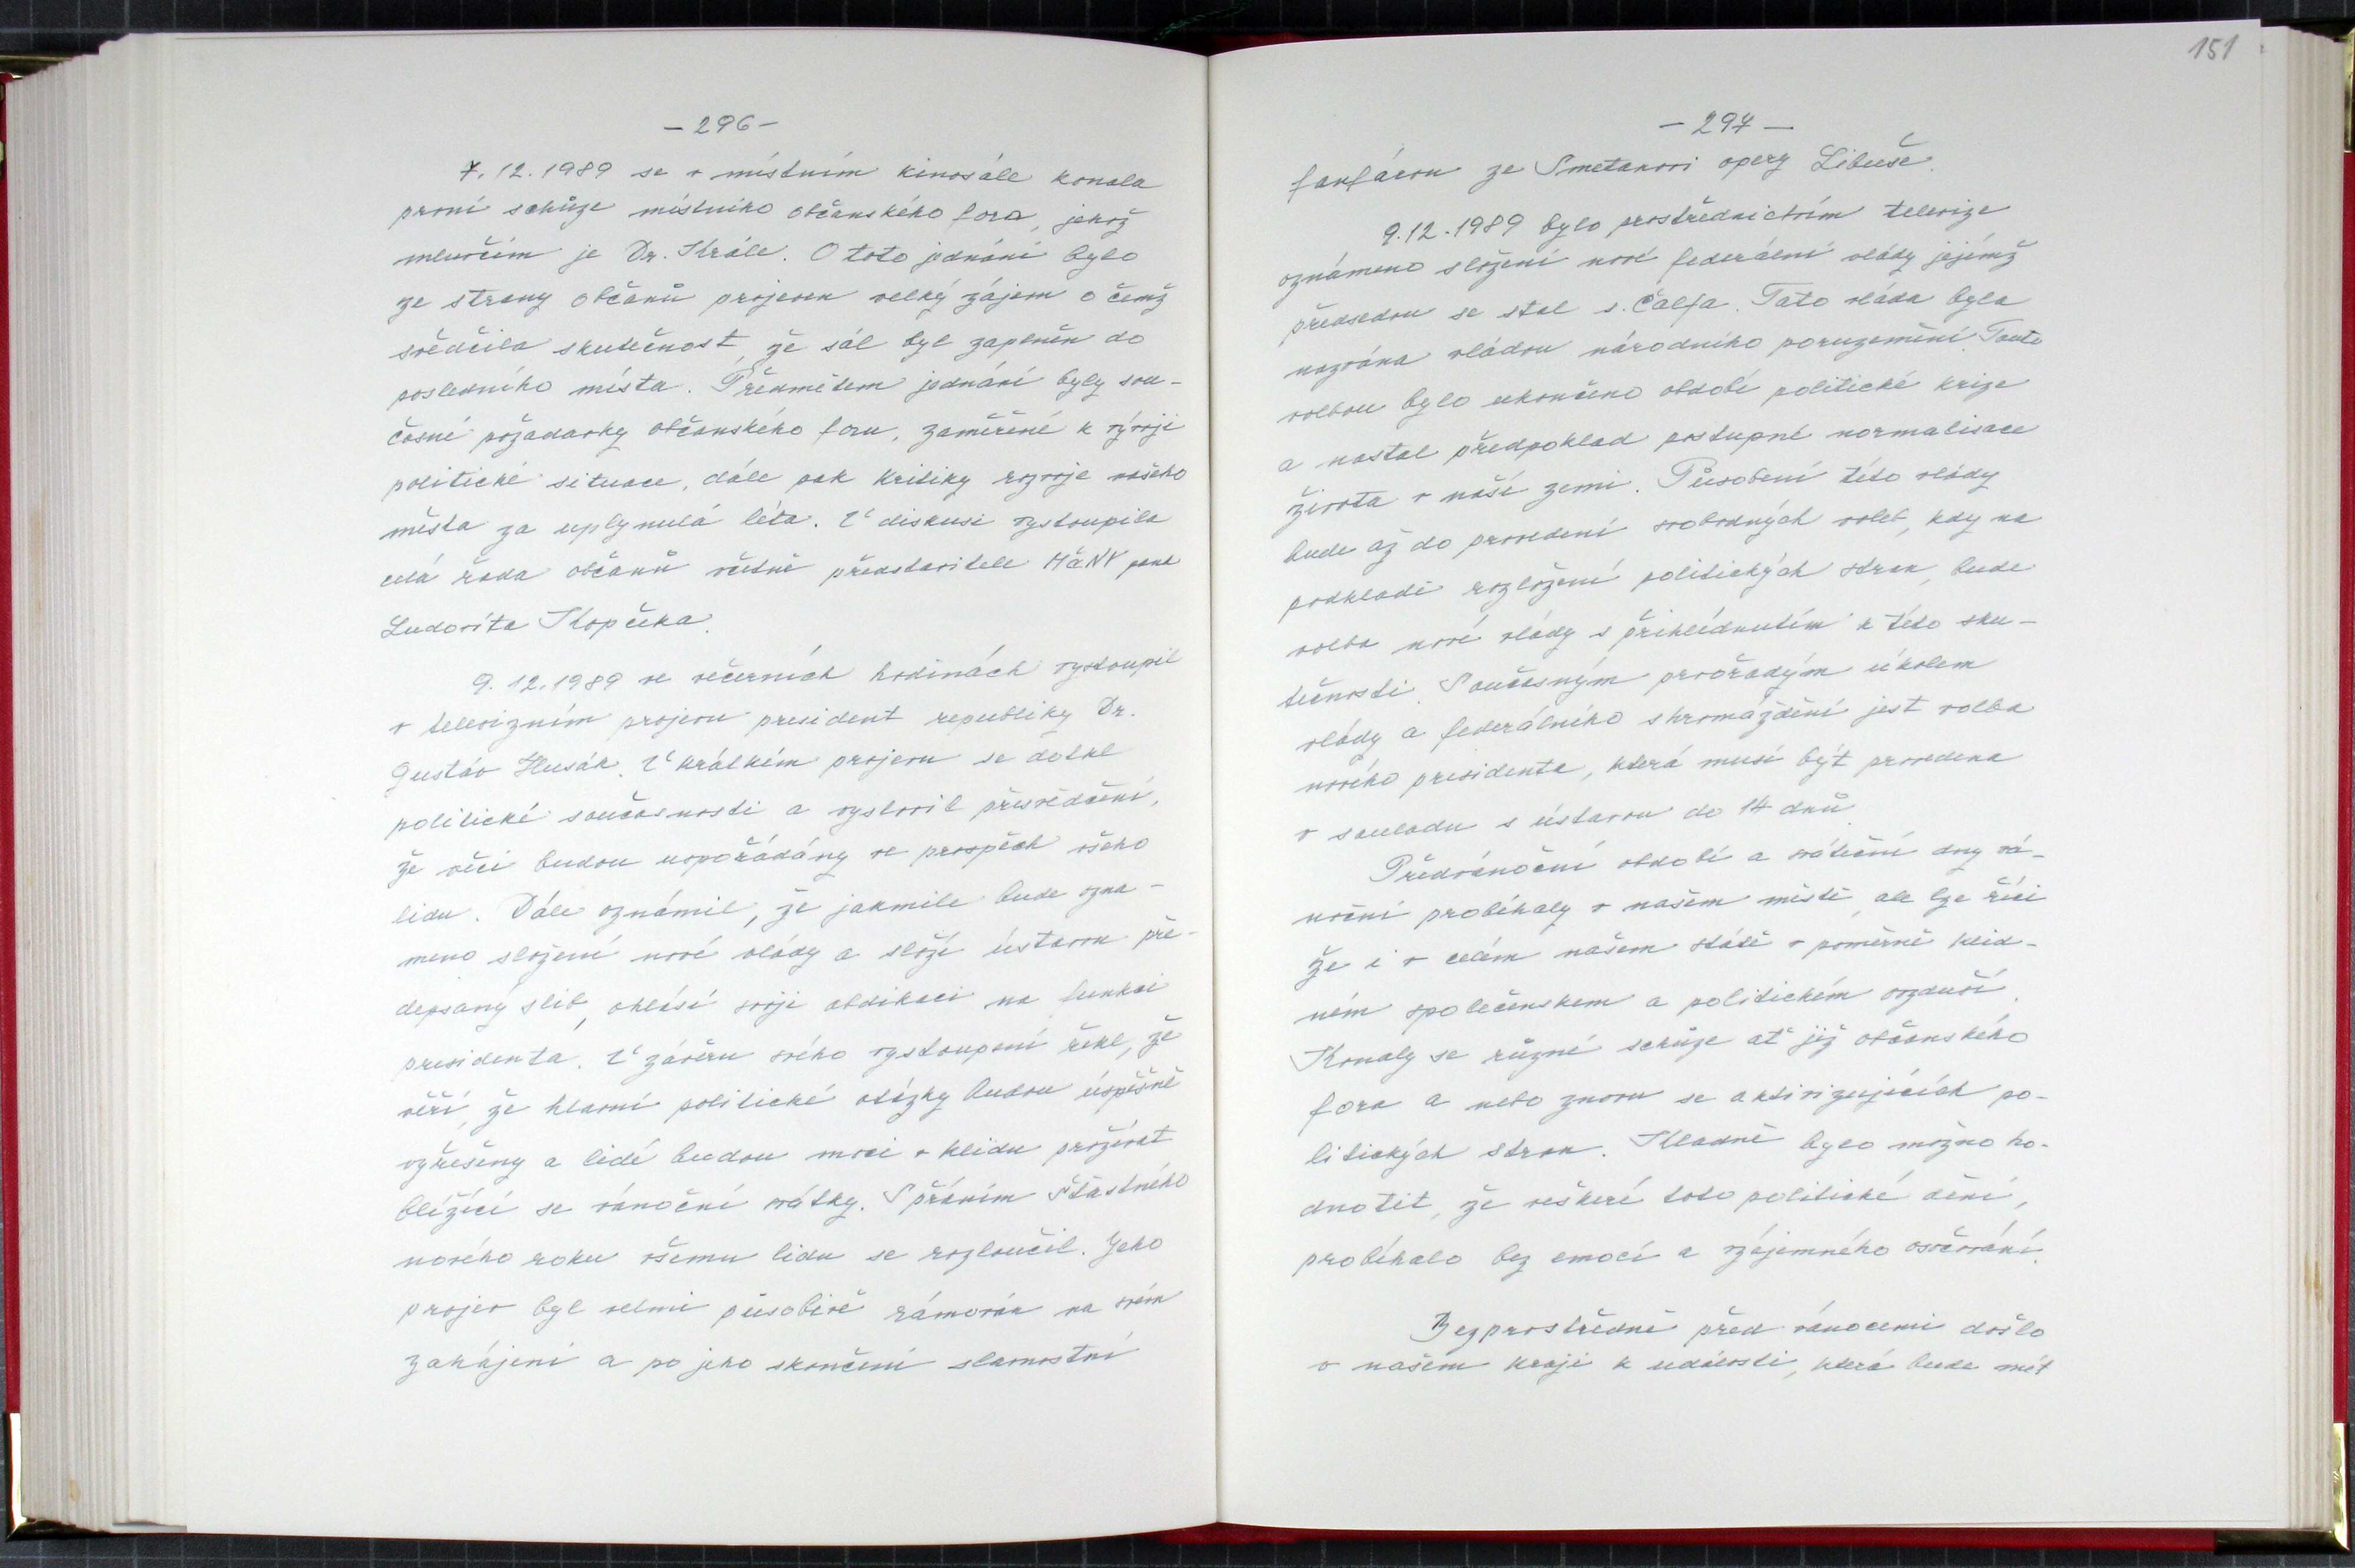 - 296 -
7. 12. 1989 se v místním kinosále konala
první schůze místního občanského fora, jehož
mluvčím je Dr. Krále. O toto jednání bylo
ze strany občanů projeven velký zájem o čemž
svědčila skutečnost, že sál byl zaplněn do
posledního místa. Předmětem jednání byly sou-
časné požadavky občanského fora, zaměřené k vývoji
politické situace, dále pak kritiky rozvoje našeho
města za uplynulá léta. V diskusi vystoupila
celá řada občanů včetně představitele MěNV pana
Ludovíta Kopčeka.
9. 12. 1989 ve večerních hodinách vystoupil
v televizním projevu president republiky Dr.
Gustáv Husák. V krátkém projevu se dotkl
politické současnosti a vyslovil přesvědčení,
že věci budou uspořádány ve prospěch všeho
lidu. Dále oznámil, že jakmile bude ozna-
meno složení nové vlády a složí ústavou pře-
depsaný slib, ohlásí svoji abdikaci na funkci
presidenta. V závěru svého vystoupení řekl, že
věří, že hlavní politické otázky budou úspěšně
vyřešeny a lidé budou moci v klidu prožívat
blížící se vánoční svátky. S přáním šťastného
nového roku všemu lidu se rozloučil. Jeho
projev byl velmi působivě rámován na svém
zahájení a po jeho skončení slavnostní
151
- 297 -
fanfárou ze Smetanovi opery Libuše.
9. 12. 1989 bylo prostřednictvím televize
oznámeno složení nové federální vlády jejímž
předsedou se stal s. Čalfa. Tato vláda byla
nazvána vládou národního porozumění. Touto
volbou bylo ukončeno období politické krize
a nastal předpoklad postupné normalisace
života v naší zemi. Působení této vlády
bude až do provedení svobodných voleb, kdy na
podkladě rozložení politických stran, bude
volba nové vlády s přihlédnutím k této sku-
tečnosti. Současným prvořadým úkolem
vlády a federálního shromáždění jest volba
nového presidenta, která musí být provedena
v souladu s ústavou do 14 dnů.
Předvánoční období a sváteční dny vá-
noční probíhaly v našem městě, ale lze říci
že i v celém našem státě v poměrně klid-
ném společenskem a politickém ovzduší.
Konaly se různé schůze ať již občanského
fora a nebo znovu se aktivizujících po-
litických stran. Kladně bylo možno ho-
dnotit, že veškeré toto politické dění,
probíhalo bez emocí a vzájemného osočování.
Bezprostředně před vánocemi došlo
v našem kraji k události, která bude mít